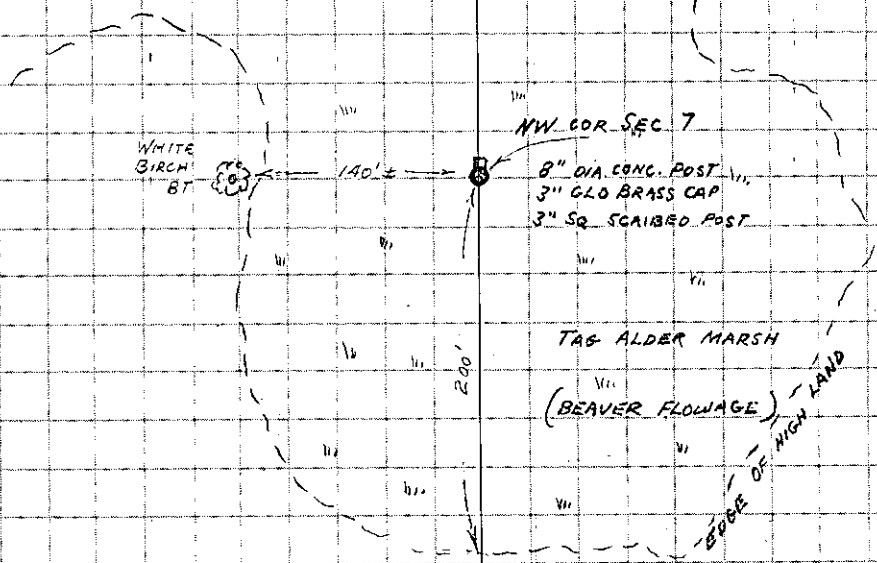 NW COR SEC 7
WHITE
BIRCH
BT
140'±
8" DIA. CONC. POST
3" GLO BRASS CAP
3" SQ SCRIBED POST
200'
TAG ALDER MARSH
(BEAVER FLOWAGE)
EDGE OF HIGH LAND